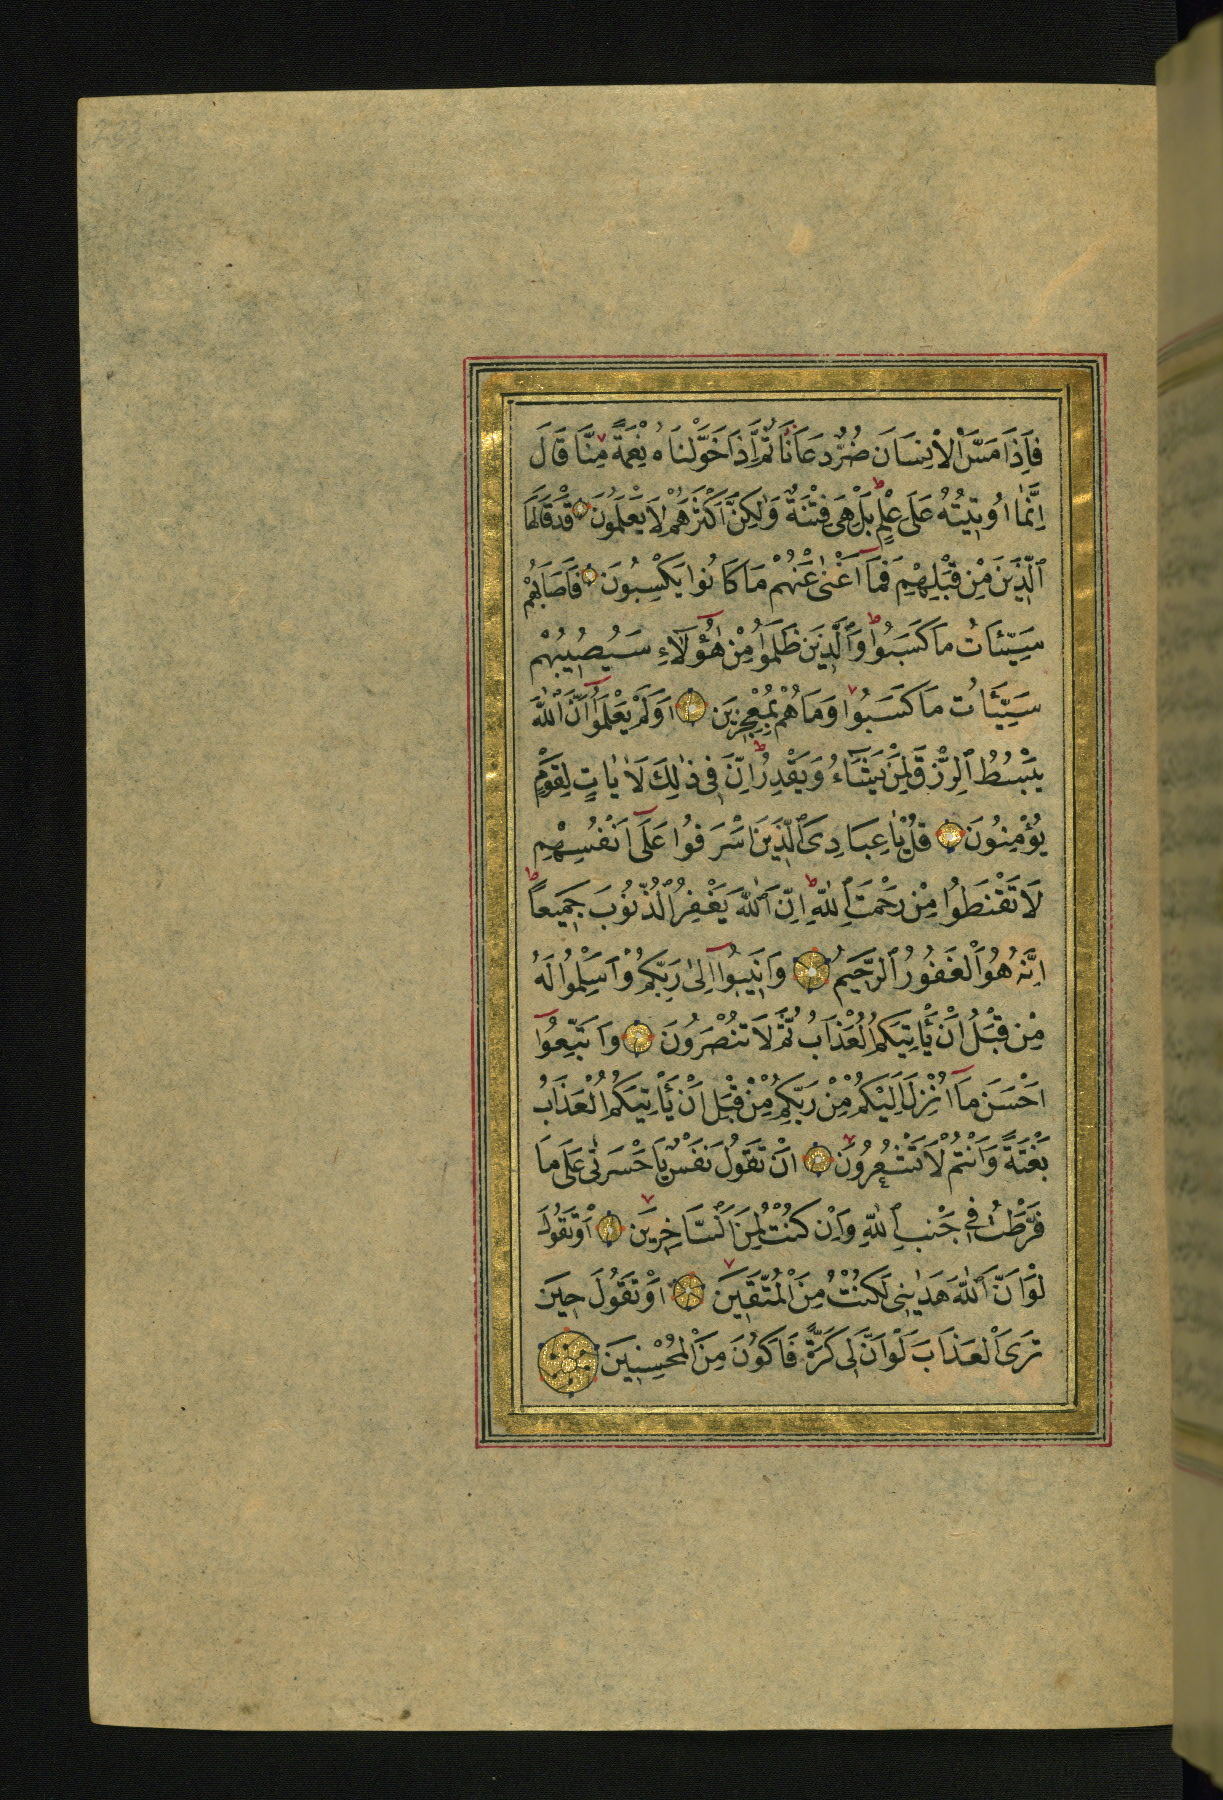 فَاِذَا مَسَّ الْاِنسَانَ ضُرٌّ دَعَانَا ثُمَّ اِذَا خَوَّلْنَاهُ نِعْمَةً مِنَّا قَالَ
اِنَّمَا اُو۫تِيتُهُ عَلَى عِلْمٍ بَلْ هِيَ فِتْنَةٌ وَلٰكِنَّ اَكْثَرَهُمْ لَا يَعْلَمُونَ قَدْ قَالَهَا
الَّذِينَ مِنْ قَبْلِهِمْ فَمَا اَغْنٰى عَنْهُمْ مَا كَانُوا يَكْسِبُونَ فَاَصَابَهُمْ
سَيِّئَاتُ مَا كَسَبُوا وَالَّذِينَ ظَلَمُوا مِنْ هٰؤُلَاءِ سَيُصِيبُهُمْ
سَيِّئَاتُ مَا كَسَبُوا وَمَا هُمْ بِمُعْجِزِينَ اَوَلَمْ يَعْلَمُوا اَنَّ اللّٰهَ
يَبْسُطُ الرِّزْقَ لِمَنْ يَشَاءُ وَيَقْدِرُ اِنَّ فِي ذٰلِكَ لَاٰيَاتٍ لِقَوْمٍ
يُؤْمِنُونَ قُلْ يَا عِبَادِيَ الَّذِينَ اَسْرَفُوا عَلَى اَنْفُسِهِمْ
لَا تَقْنَطُوا مِنْ رَحْمَتِ اللّٰهِ اِنَّ اللّٰهَ يَغْفِرُ الذُّنُوبَ جَمِيعًا
اِنَّهُ هُوَ الْغَفُورُ الرَّحِيمُ وَاَنِيبُوا اِلٰى رَبِّكُمْ وَاَسْلِمُوا لَهُ
مِنْ قَبْلِ اَنْ يَأْتِيَكُمُ الْعَذَابُ ثُمَّ لَا تُنْصَرُونَ وَاتَّبِعُوا
اَحْسَنَ مَا اُنْزِلَ اِلَيْكُمْ مِنْ رَبِّكُمْ مِنْ قَبْلِ اَنْ يَأْتِيَكُمُ الْعَذَابُ
بَغْتَةً وَاَنْتُمْ لَا تَشْعُرُونَ اَنْ تَقُولَ نَفْسٌ يَا حَسْرَتٰى عَلَى مَا
فَرَّطْتُ فِي جَنْبِ اللّٰهِ وَاِنْ كُنْتُ لَمِنَ السَّاخِرِينَ اَوْ تَقُولَ
لَوْ اَنَّ اللّٰهَ هَدٰينِي لَكُنْتُ مِنَ الْمُتَّقِينَ اَوْ تَقُولَ حِينَ
تَرَى الْعَذَابَ لَوْ اَنَّ لِي كَرَّةً فَاَكُونَ مِنَ الْمُحْسِنِينَ